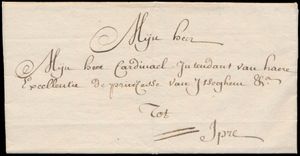 Mijn heer
Mijn heer Cardinael Intendant van haere
Excellentie De princesse van Isseghem &a
Tot
Ipre